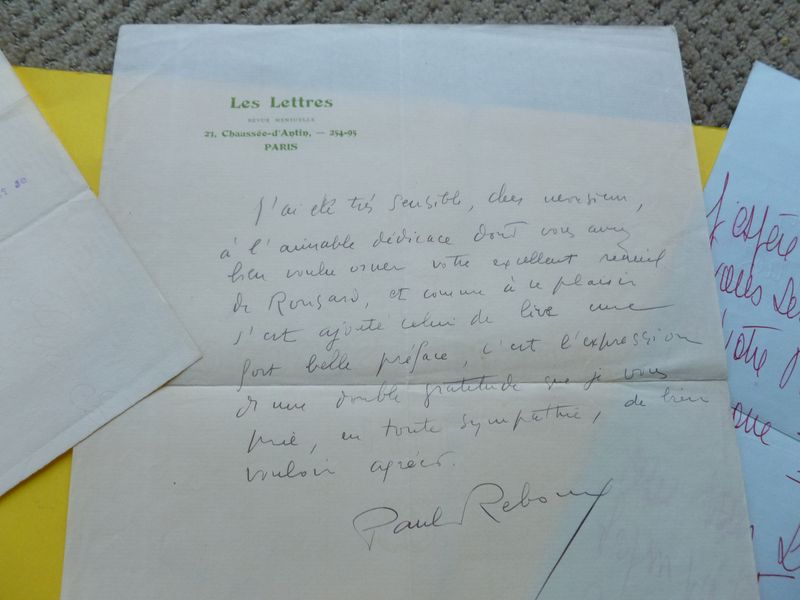 Les Lettres
REVUE MENSUELLE
27, Chaussée-d'Antin, — 254-95
PARIS
J'ai été très sensible, cher monsieur,
à l'aimable dédicace dont vous avez
bien voulu orner votre excellent recueil
de Ronsard, et comme à ce plaisir
s'est ajouté celui de lire une
fort belle préface, c'est l'expression
d'une double gratitude que je vous
prie, en toute sympathie, de bien
vouloir agréer.
Paul Reboux
J'espère
vous
Votre